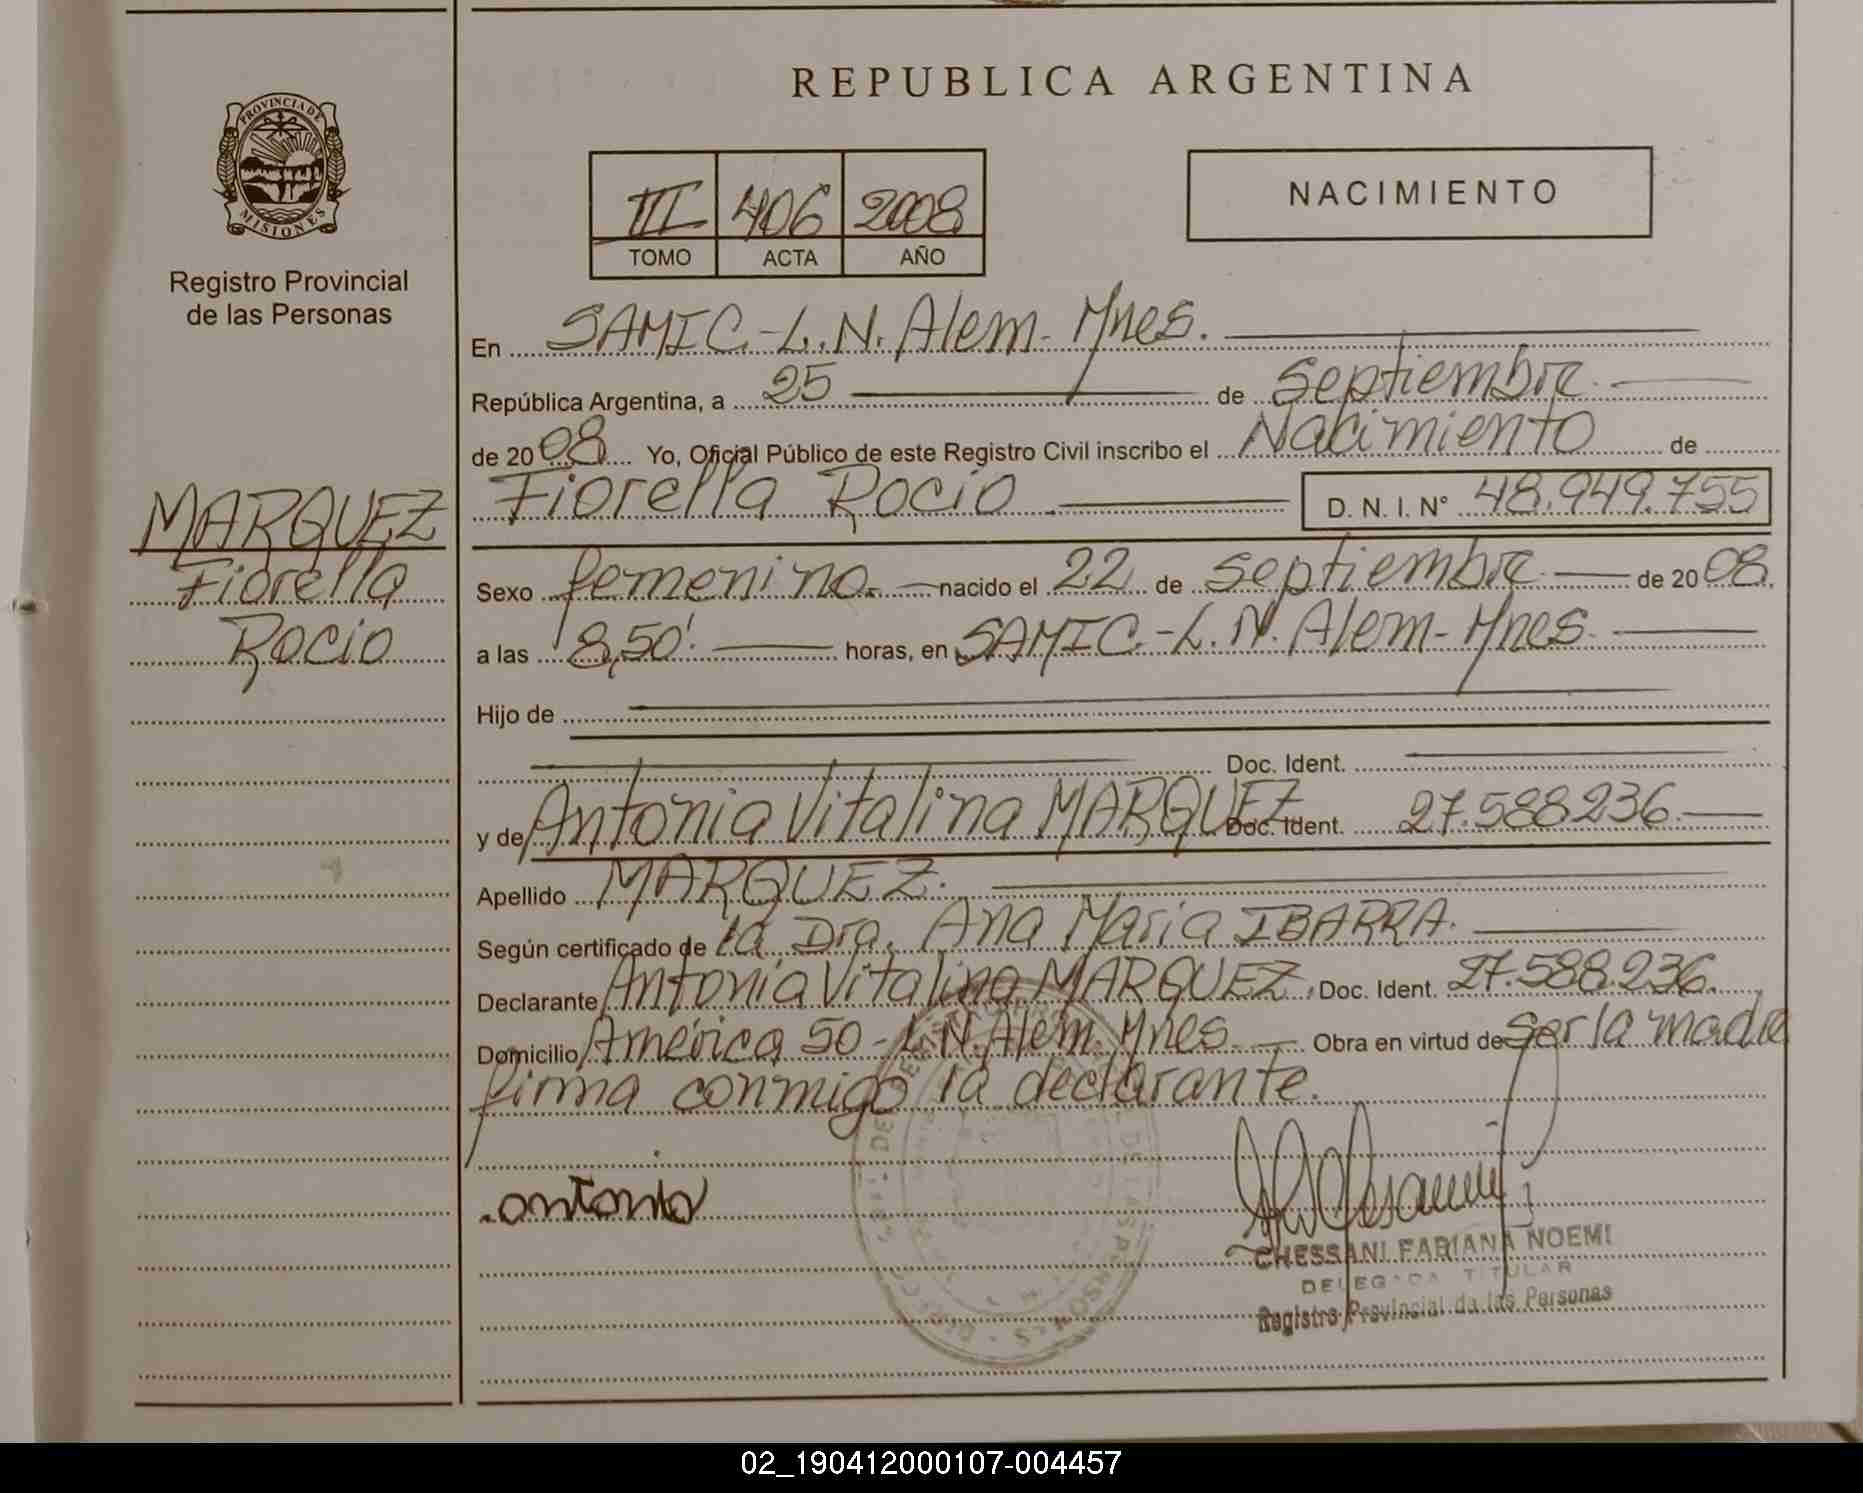 REPUBLICA ARGENTINA
PROVINCIA DE
MISIONES
Registro Provincial
de las Personas
III 406 2008
TOMO ACTA AÑO
NACIMIENTO
En SAMIC-L.N. Alem- Mnes.
República Argentina, a 25 de Septiembre
de 2008 Yo, Oficial Público de este Registro Civil inscribo el Nacimiento de
Fiorella Rocio D. N. I. N° 48.949.755
MARQUEZ
Fiorella
Rocio
Sexo femenino. nacido el 22 de Septiembre de 2008
a las 8,50'. horas, en SAMIC-L.N. Alem- Mnes.
Hijo de
Doc. Ident.
y de Antonia Vitalina MARQUEZ Doc. Ident. 27.588.236.
Apellido MARQUEZ.
Según certificado de la Dra. Ana Maria IBARRA.
Declarante Antonia Vitalina MARQUEZ Doc. Ident. 27.588.236.
Domicilio América 50-L.N. Alem. Mnes. Obra en virtud de ser la madre
firma conmigo la declarante.
antonia
CHESSANI FABIANA NOEMI
DELEGADA TITULAR
Registro Provincial de las Personas
02_190412000107-004457